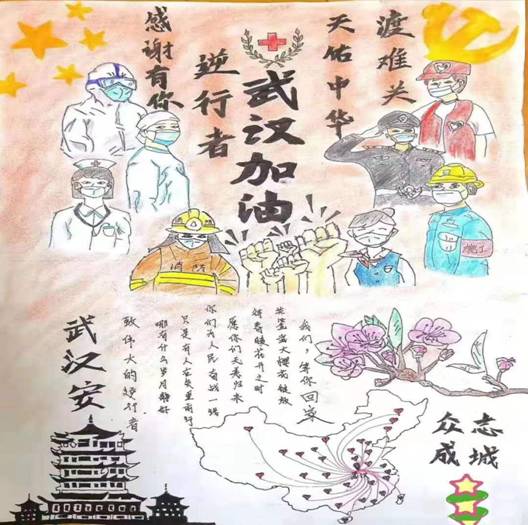 感谢有你
逆行者
武汉加油
天佑中华
渡难关
消防
武汉安
致伟大的逆行者
哪有什么岁月静好
只是有人在负重前行
你们
愿你们平安归来
待春暖花开之时
樱花绽放
我们，等你回家
众志
成城